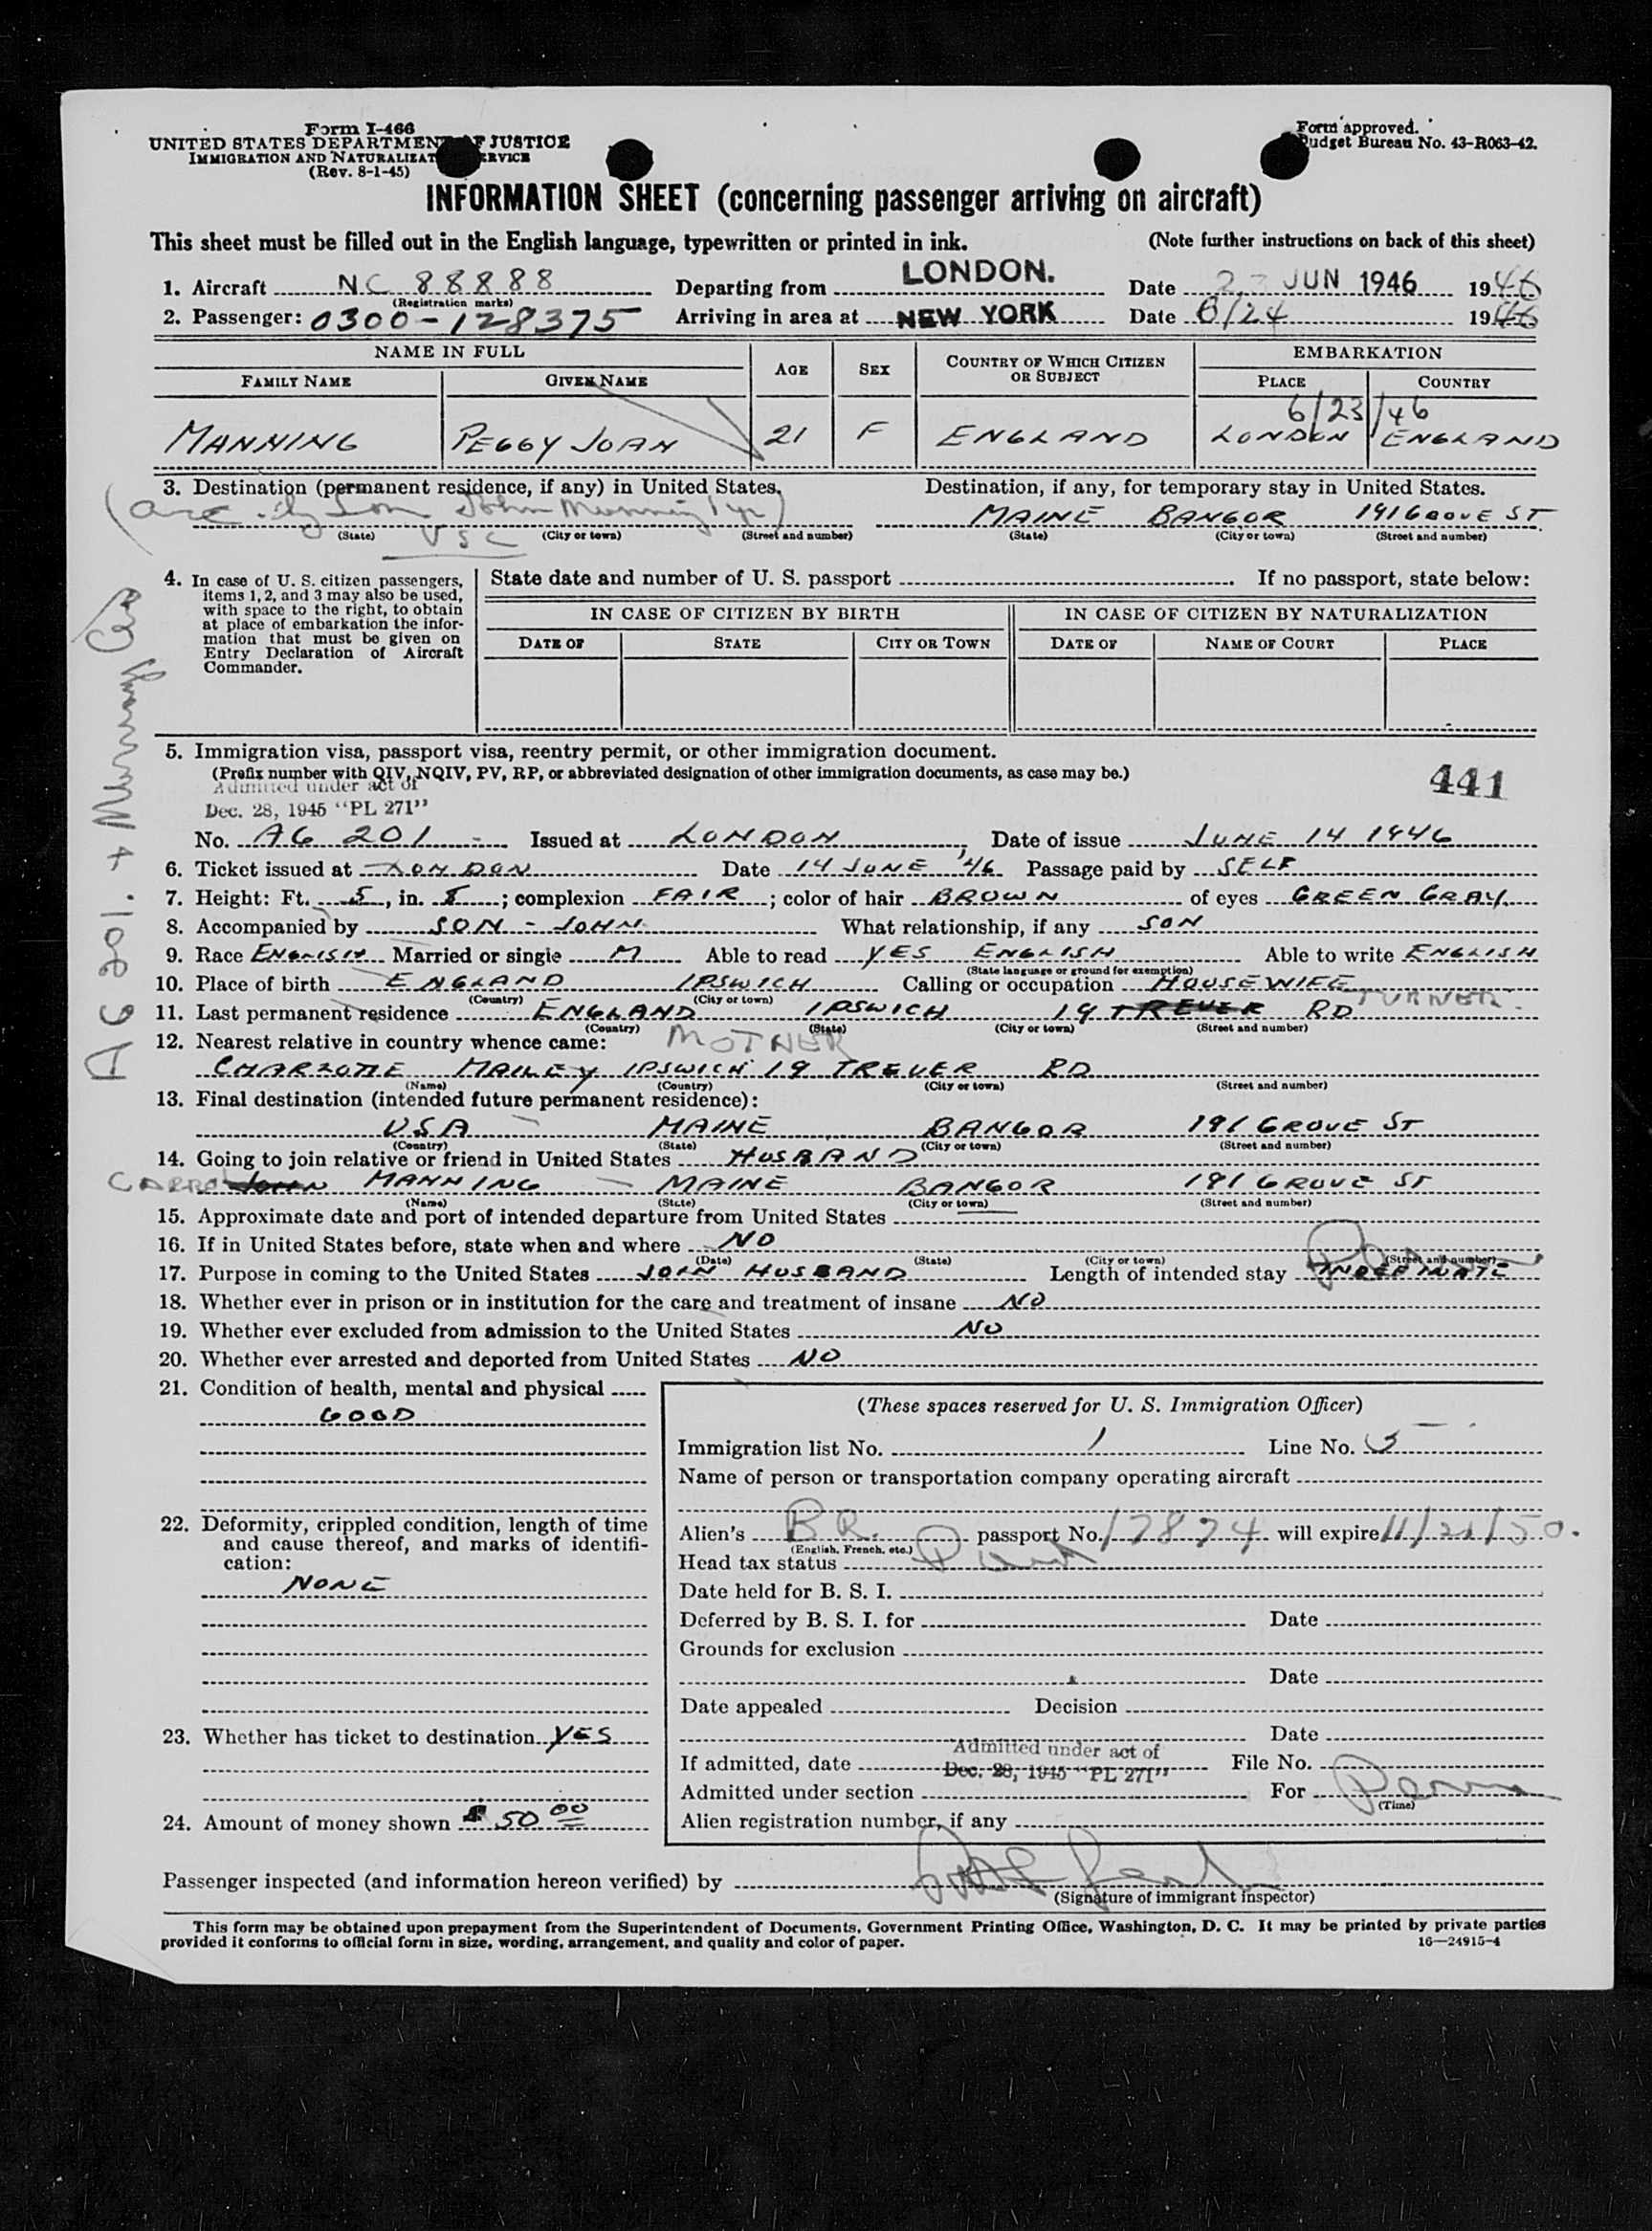 Form I-466
UNITED STATES DEPARTMENT OF JUSTICE
IMMIGRATION AND NATURALIZATION SERVICE
(Rev. 8-1-45)
Form approved.
Budget Bureau No. 43-R063-42.
INFORMATION SHEET (concerning passenger arriving on aircraft)
This sheet must be filled out in the English language, typewritten or printed in ink. (Note further instructions on back of this sheet)
1. Aircraft NC 88888 Departing from LONDON. Date JUN 1946 1946
(Registration marks)
2. Passenger: 0300-128375 Arriving in area at NEW YORK Date 6/24 1946
NAME IN FULL AGE SEX COUNTRY OF WHICH CITIZEN OR SUBJECT EMBARKATION
FAMILY NAME GIVEN NAME PLACE COUNTRY
6/23/46
MANNING PEGGY JOAN 21 F ENGLAND LONDON ENGLAND
3. Destination (permanent residence, if any) in United States. Destination, if any, for temporary stay in United States.
(acc. by Son John Manning 1 yr) MAINE BANGOR 191 GROVE ST.
(State) USC (City or town) (Street and number) (State) (City or town) (Street and number)
4. In case of U. S. citizen passengers, items 1, 2, and 3 may also be used, with space to the right, to obtain at place of embarkation the information that must be given on Entry Declaration of Aircraft Commander.
State date and number of U. S. passport If no passport, state below:
IN CASE OF CITIZEN BY BIRTH IN CASE OF CITIZEN BY NATURALIZATION
DATE OF STATE CITY OR TOWN DATE OF NAME OF COURT PLACE
5. Immigration visa, passport visa, reentry permit, or other immigration document.
(Prefix number with QIV, NQIV, PV, RP, or abbreviated designation of other immigration documents, as case may be.)
441
Admitted under act of
Dec. 28, 1945 "PL 271"
No. AG 201 - Issued at LONDON Date of issue JUNE 14 1946
6. Ticket issued at LONDON Date 14 JUNE '46 Passage paid by SELF
7. Height: Ft. 5, in. 8; complexion FAIR; color of hair BROWN of eyes GREEN GRAY
8. Accompanied by SON - JOHN What relationship, if any SON
9. Race ENGLISH Married or single M Able to read YES ENGLISH Able to write ENGLISH
(State language or ground for exemption)
10. Place of birth ENGLAND IPSWICH Calling or occupation HOUSEWIFE
(Country) (City or town)
TURNER
11. Last permanent residence ENGLAND IPSWICH 19 TREVER RD
(Country) (State) (City or town) (Street and number)
12. Nearest relative in country whence came: MOTHER
CHARLOTTE MAILEY IPSWICH 19 TREVER RD
(Name) (Country) (City or town) (Street and number)
13. Final destination (intended future permanent residence):
USA MAINE BANGOR 191 GROVE ST
(Country) (State) (City or town) (Street and number)
14. Going to join relative or friend in United States HUSBAND
JOHN MANNING MAINE BANGOR 191 GROVE ST
(Name) (State) (City or town) (Street and number)
15. Approximate date and port of intended departure from United States
16. If in United States before, state when and where NO
(Date) (State) (City or town) (Street and number)
17. Purpose in coming to the United States JOIN HUSBAND Length of intended stay INDEFINATE
18. Whether ever in prison or in institution for the care and treatment of insane NO
19. Whether ever excluded from admission to the United States NO
20. Whether ever arrested and deported from United States NO
21. Condition of health, mental and physical
GOOD
22. Deformity, crippled condition, length of time and cause thereof, and marks of identification:
NONE
23. Whether has ticket to destination YES
24. Amount of money shown $50 00
(These spaces reserved for U. S. Immigration Officer)
Immigration list No. 1 Line No. 3
Name of person or transportation company operating aircraft
Alien's BR. passport No. 17874 will expire 11/21/50.
(English, French, etc.)
Head tax status
Date held for B. S. I.
Deferred by B. S. I. for Date
Grounds for exclusion
Date
Date appealed Decision
Date
Admitted under act of
If admitted, date Dec. 28, 1945 "PL 271" File No.
Admitted under section For Perm
(Time)
Alien registration number, if any
Passenger inspected (and information hereon verified) by
(Signature of immigrant inspector)
This form may be obtained upon prepayment from the Superintendent of Documents, Government Printing Office, Washington, D. C. It may be printed by private parties
provided it conforms to official form in size, wording, arrangement, and quality and color of paper.
16—24915-4